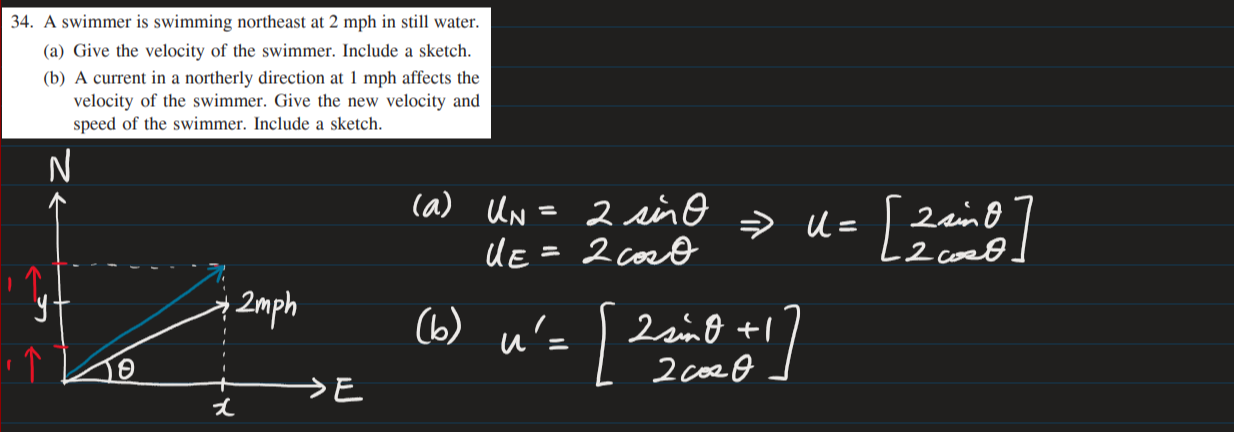 34. A swimmer is swimming northeast at 2 mph in still water.
(a) Give the velocity of the swimmer. Include a sketch.
(b) A current in a northerly direction at 1 mph affects the
velocity of the swimmer. Give the new velocity and
speed of the swimmer. Include a sketch.
N
(a) u_N = 2 sinθ ⇒ u = [2 sinθ
u_E = 2 cosθ 2 cosθ]
1 y
2mph
(b) u' = [2 sinθ + 1
2 cosθ]
1 θ
E
x